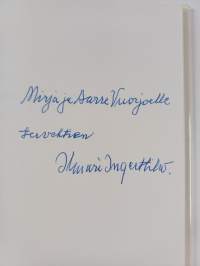 Mirja ja Aarre Vuorjoelle
tervehtien
Ilmari Ingertthila.